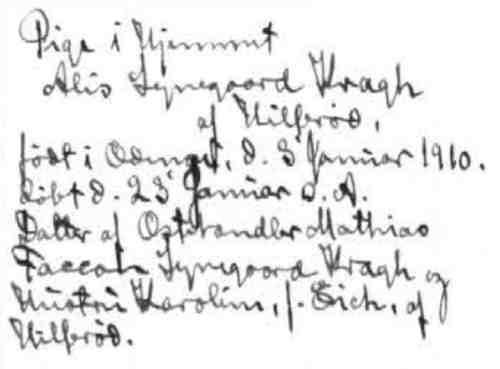 Pige i Hjemmet
Alis Lyngaard Kragh
af Hillerød,
født i d. 3' Januar 1910.
døbt d. 23' Januar s. A.
Datter af Ostehandler Mathias
Lyngaard Kragh og
Hustru Karoline, f. af
Hillerød.